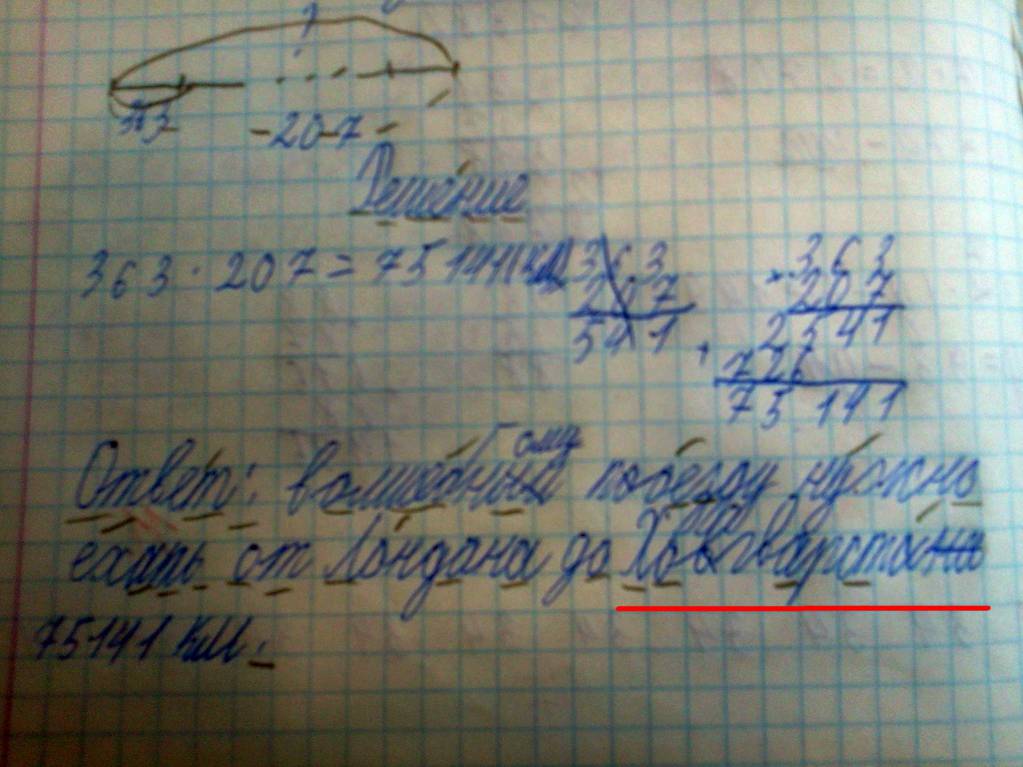 ?
363
-207-
Решение
363 · 207 = 75141(км)
363
207
541
363
207
2541
726
75141
Ответ: волшебному поезду нужно
ехать от Лондана до Хогвартса
75141 км.